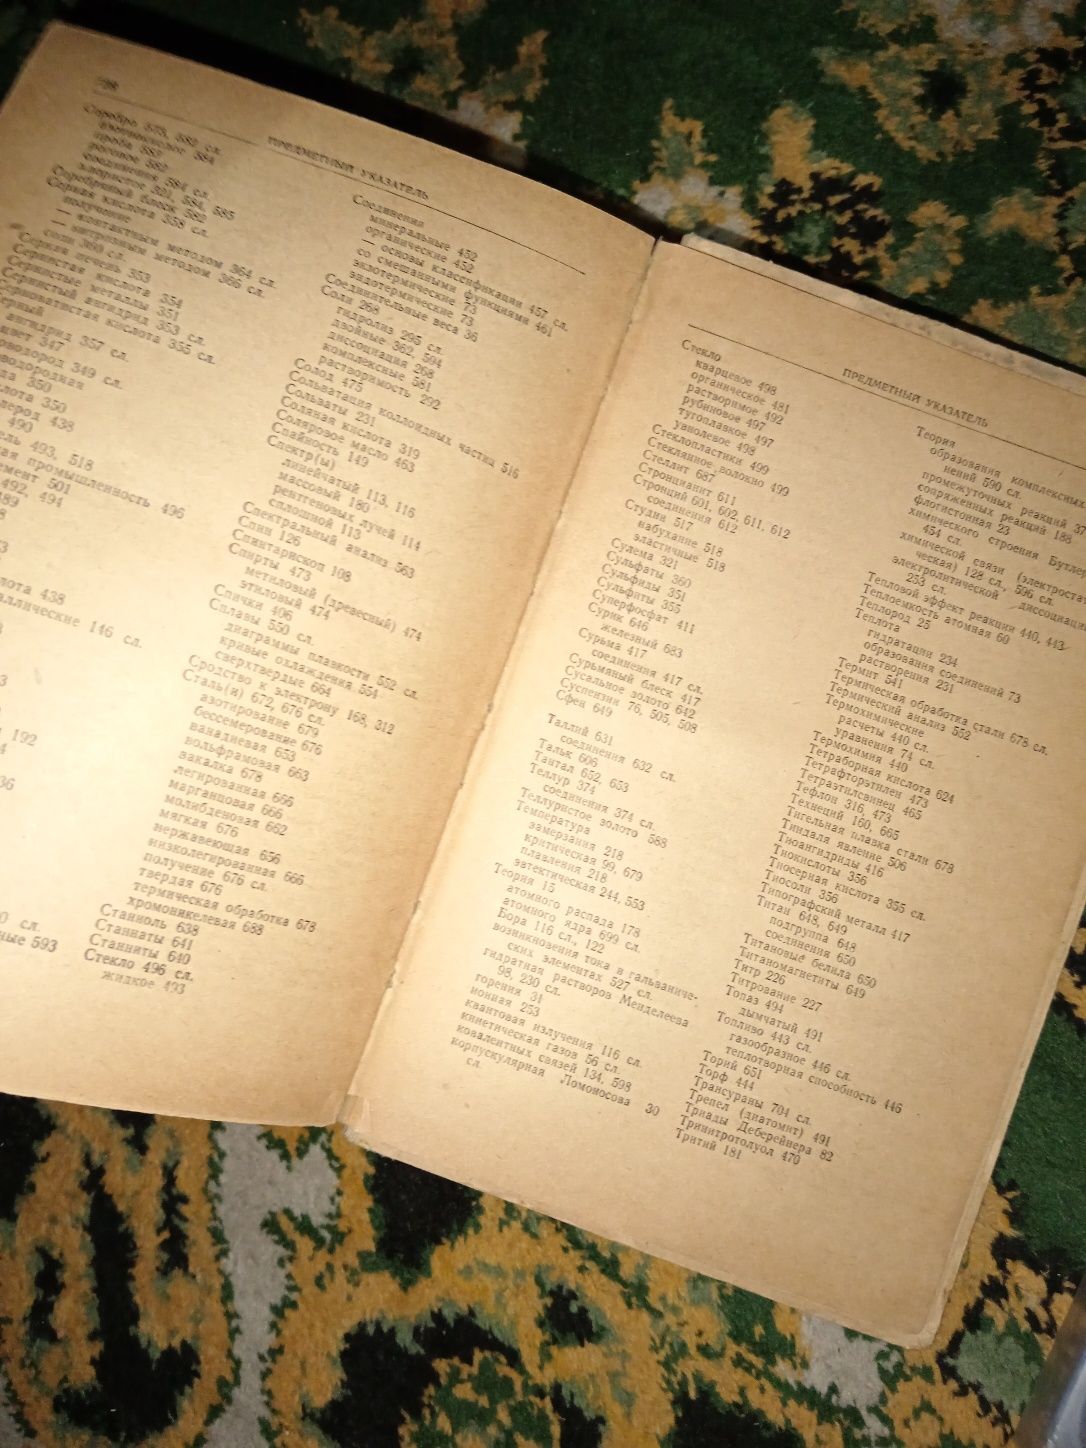 ПРЕДМЕТНЫЙ УКАЗАТЕЛЬ
Серебро 573, 582 сл.
проба 583
роговое 582
соединения 584 сл.
хлористое 321, 584, 585
Серебряный блеск 582
Серная кислота 358 сл.
получение
— контактным методом 364 сл.
— нитрозным методом 366 сл.
соли 360 сл.
Серная печень 353
Сернистая кислота 354
Сернистые металлы 351
Сернистый ангидрид 353 сл.
Серноватистая кислота 355 сл.
ангидрид 357 сл.
цвет 347
349 сл.
350
350
438
490
493, 518
промышленность 496
501
492, 494
438
146 сл.
192
593
Соединения
минеральные 452
органические 452
— основы классификации 457 сл.
со смешанными функциями 461
экзотермические 73
эндотермические 73
Соединительные веса 36
Соли 268
гидролиз 295 сл.
двойные 362, 594
диссоциация 268
комплексные 581
растворимость 292
Солод 475
Сольватация коллоидных частиц 516
Сольваты 231
Соляная кислота 319
Соляровое масло 463
Спайность 149
Спектр(ы)
линейчатый 113, 116
массовый 180
рентгеновых лучей 114
сплошной 113
Спектральный анализ 563
Спин 126
Спинтарископ 108
Спирты 473
метиловый (древесный) 474
этиловый 474
Спички 406
Сплавы 550 сл.
диаграммы плавкости 552 сл.
кривые охлаждения 551
сверхтвердые 664
Сродство к электрону 168, 312
Сталь(и) 672, 676 сл.
азотирование 679
бессемерование 676
ванадиевая 653
вольфрамовая 663
закалка 678
легированная 666
марганцовая 666
молибденовая 662
мягкая 676
нержавеющая 656
низколегированная 666
получение 676 сл.
твердая 676
термическая обработка 678
хромоникелевая 688
Станниоль 638
Станнаты 641
Станниты 640
Стекло 496 сл.
жидкое 493
ПРЕДМЕТНЫЙ УКАЗАТЕЛЬ
Стекло
кварцевое 498
органическое 481
растворимое 492
рубиновое 497
тугоплавкое 497
увиолевое 498
Стеклопластики 499
Стеклянное волокно 499
Стеллит 687
Стронцианит 611
Стронций 601, 602, 611, 612
соединения 612
Студни 517
набухание 518
эластичные 518
Сулема 321
Сульфаты 360
Сульфиды 351
Сульфиты 355
Суперфосфат 411
Сурик 646
железный 683
Сурьма 417
соединения 417 сл.
Сурьмяный блеск 417
Сусальное золото 642
Суспензии 76, 505, 508
Сфен 649
Таллий 631
соединения 632 сл.
Тальк 606
Тантал 652, 653
Теллур 374
соединения 374 сл.
Теллуристое золото 588
Температура
замерзания 218
критическая 99, 679
плавления 218
эвтектическая 244, 553
Теория 15
атомного распада 178
атомного ядра 699 сл.
Бора 116 сл., 122
возникновения тока в гальваниче-
ских элементах 527 сл.
гидратная растворов Менделеева
98, 230 сл.
горения 31
ионная 253
квантовая излучения 116 сл.
кинетическая газов 56 сл.
ковалентных связей 134, 598
корпускулярная Ломоносова 30
сл.
Теория
образования комплексных
нений 590 сл.
промежуточных реакций
сопряженных реакций 188
флогистонная 23
химического строения Бутлер
454 сл.
химической связи (электростат
ческая) 128 сл., 596 сл.
электролитической диссоциации
253 сл.
Тепловой эффект реакции 440, 443
Теплоемкость атомная 60
Теплород 25
Теплота
гидратации 234
образования соединений 73
растворения 231
Термит 541
Термическая обработка стали 678 сл.
Термический анализ 552
Термохимические
расчеты 440 сл.
уравнения 74 сл.
Термохимия 440
Тетраборная кислота 624
Тетрафторэтилен 473
Тетраэтилсвинец 465
Тефлон 316, 473
Технеций 160, 665
Тигельная плавка стали 678
Тиндаля явление 506
Тиоангидриды 416
Тиокислоты 356
Тиосерная кислота 355 сл.
Тиосоли 356
Типографский металл 417
Титан 648, 649
подгруппа 648
соединения 650
Титановые белила 650
Титаномагнетиты 649
Титр 226
Титрование 227
Топаз 494
дымчатый 491
Топливо 443 сл.
газообразное 446 сл.
теплотворная способность 446
Торий 651
Торф 444
Трансураны 704 сл.
Трепел (диатомит) 491
Триады Деберейнера 82
Тринитротолуол 470
Тритий 181